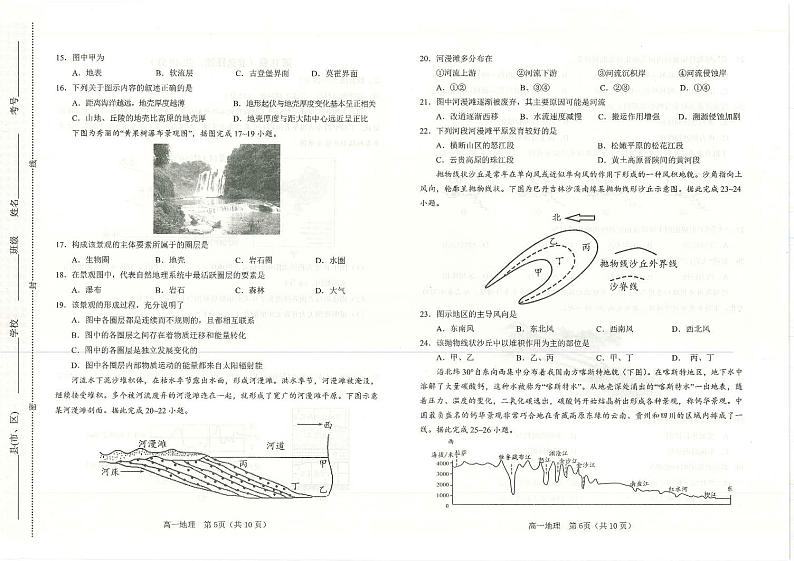 县(市、区)
学校
班级
姓名
考号
密
封
线
15．图中甲为
A．地表 B．软流层 C．古登堡界面 D．莫霍界面
16．下列关于图示内容的叙述正确的是
A．距离海洋越远，地壳厚度越薄 B．地形起伏与地壳厚度变化基本呈正相关
C．山地、丘陵的地壳比高原的地壳厚 D．地壳厚度与距大陆中心远近呈正比
下图为秀丽的“黄果树瀑布景观图”，据图完成 17~19 小题。
17．构成该景观的主体要素所属于的圈层是
A．生物圈 B．地壳 C．岩石圈 D．水圈
18．在景观图中，代表自然地理系统中最活跃圈层的要素是
A．瀑布 B．岩石 C．森林 D．大气
19．该景观的形成过程，充分说明了
A．图中各圈层都是连续而不规则的，且都相互联系
B．图中的各圈层之间存在着物质迁移和能量转化
C．图中的各圈层是独立发展变化的
D．图中各圈层内部物质运动的能量都来自太阳辐射能
河流水下泥沙堆积体，在枯水季节露出水面，形成河漫滩。洪水季节，河漫滩被淹没，
继续接受堆积。多个被河流废弃的河漫滩连在一起，就形成了宽广的河漫滩平原。下图示意
某河漫滩剖面。据此完成 20~22 小题。
西
河漫滩
河道
河床
丙
甲
丁
乙
高一地理 第 5页（共 10 页）
20．河漫滩多分布在
①河流上游 ②河流下游 ③河流沉积岸 ④河流侵蚀岸
A．①② B．③④ C．②③ D．①④
21．图中河漫滩逐渐被废弃，其主要原因可能是河流
A．改道逐渐西移 B．水流速度减慢 C．搬运作用增强 D．溯源侵蚀加剧
22．下列河段河漫滩平原发育较好的是
A．横断山区的怒江段 B．松嫩平原的松花江段
C．云贵高原的珠江段 D．黄土高原晋陕间的黄河段
抛物线状沙丘是常年在单向风或近似单向风的作用下形成的一种风积地貌。沙角指向上
风向，轮廓呈抛物线状。下图为巴丹吉林沙漠南缘某抛物线形沙丘示意图。据此完成 23~24
小题。
北
乙
丙
丁
甲
抛物线沙丘外界线
沙脊线
23．图示地区的主导风向是
A．东南风 B．东北风 C．西南风 D．西北风
24．该抛物线状沙丘中以堆积作用为主的部位是
A．甲、乙 B．乙、丙 C．甲、丁 D．丙、丁
沿北纬 30°自东向西集中分布着我国南方喀斯特地貌（下图）。在喀斯特地区，地下水中
溶解了大量碳酸钙，这种水被称为“喀斯特水”。从地壳深处涌出的“喀斯特水”一出地表，随
着压力、温度的变化，二氧化碳逸出，碳酸钙开始结晶析出形成各种景观，称钙华景观。中
国最负盛名的钙华景观非常巧合地在青藏高原东缘的云南、贵州和四川的区域内排成了一
线。据此完成 25~26 小题。
西
海拔/米
拉萨
雅鲁藏布江
怒江
澜沧江
金沙江
金沙江
南盘江
红水河
柳江
东
4000
3000
2000
1000
0
高一地理 第 6页（共 10 页）